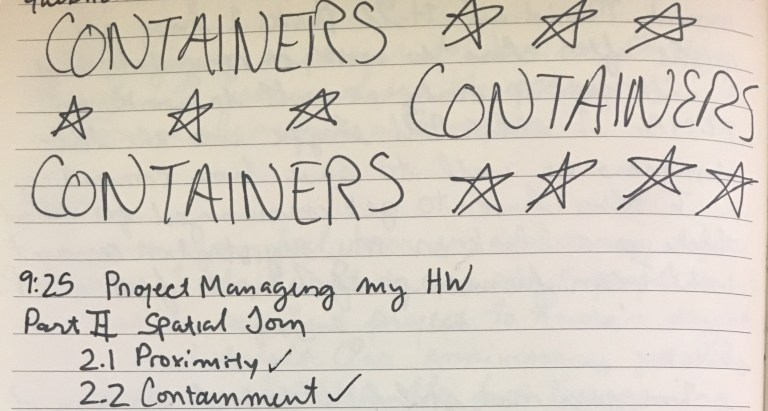 CONTAINERS ☆ ☆ ☆
☆ ☆ ☆ CONTAINERS
CONTAINERS ☆ ☆ ☆ ☆
9:25 Project Managing my HW
Part II Spatial Join
2.1 Proximity ✓
2.2 Containment ✓